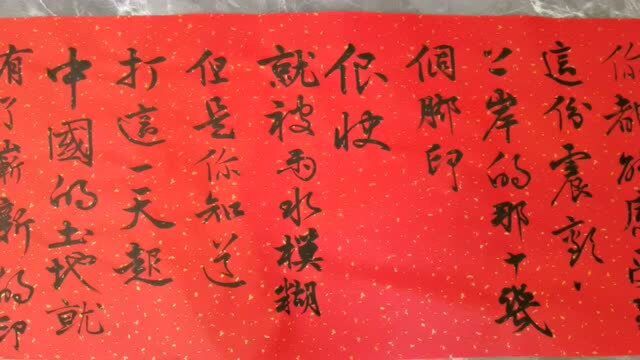 你都能感
這份震顫，
上岸的那十幾
個腳印
很快
就被雨水模糊
但是你知道
打這一天起
中國的土地就
有了嶄新的印